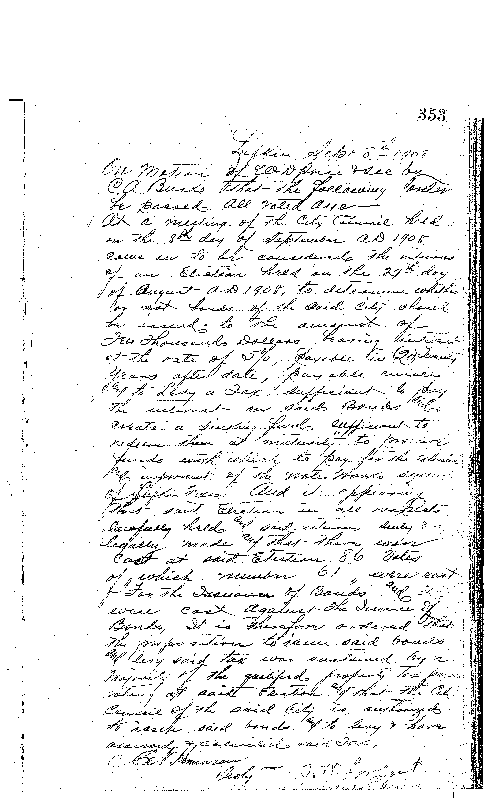 353
Lufkin Sept 8th 1908
On Motion of & sec by
C.A. Bonds that the following order
be passed. All voted aye—
At a meeting of the City Council held
on the 8th day of September A.D 1908
came on to be considered the returns
of an Election held on the 29th day
of August A.D 1908, to determine whether
or not bonds of the said City should
be issued, to the amount of
Ten thousands Dollars, bearing interest
at the rate of 5%, payable in
Years after date,
& to Levy a Tax sufficient to pay
the interest on said Bonds &
create a sinking fund sufficient to
redeem them at maturity to provide
funds with which to pay for the
of the Water Works system
of And it appearing
that said Election in all respects
lawfully held & said returns duly &
legally made & that there were
Cast at said Election 86 Votes
of which number 61 were cast
For the Issuance of Bonds &
were cast Against the Issuance of
Bonds, It is therefore ordered that
the proposition to issue said bonds
& levy said tax was sustained by a
Majority of the qualified property tax
voting at said Election & that the City
Council of the said City is authorized
to issue said bonds & to levy & have
assessed & collected said Tax.